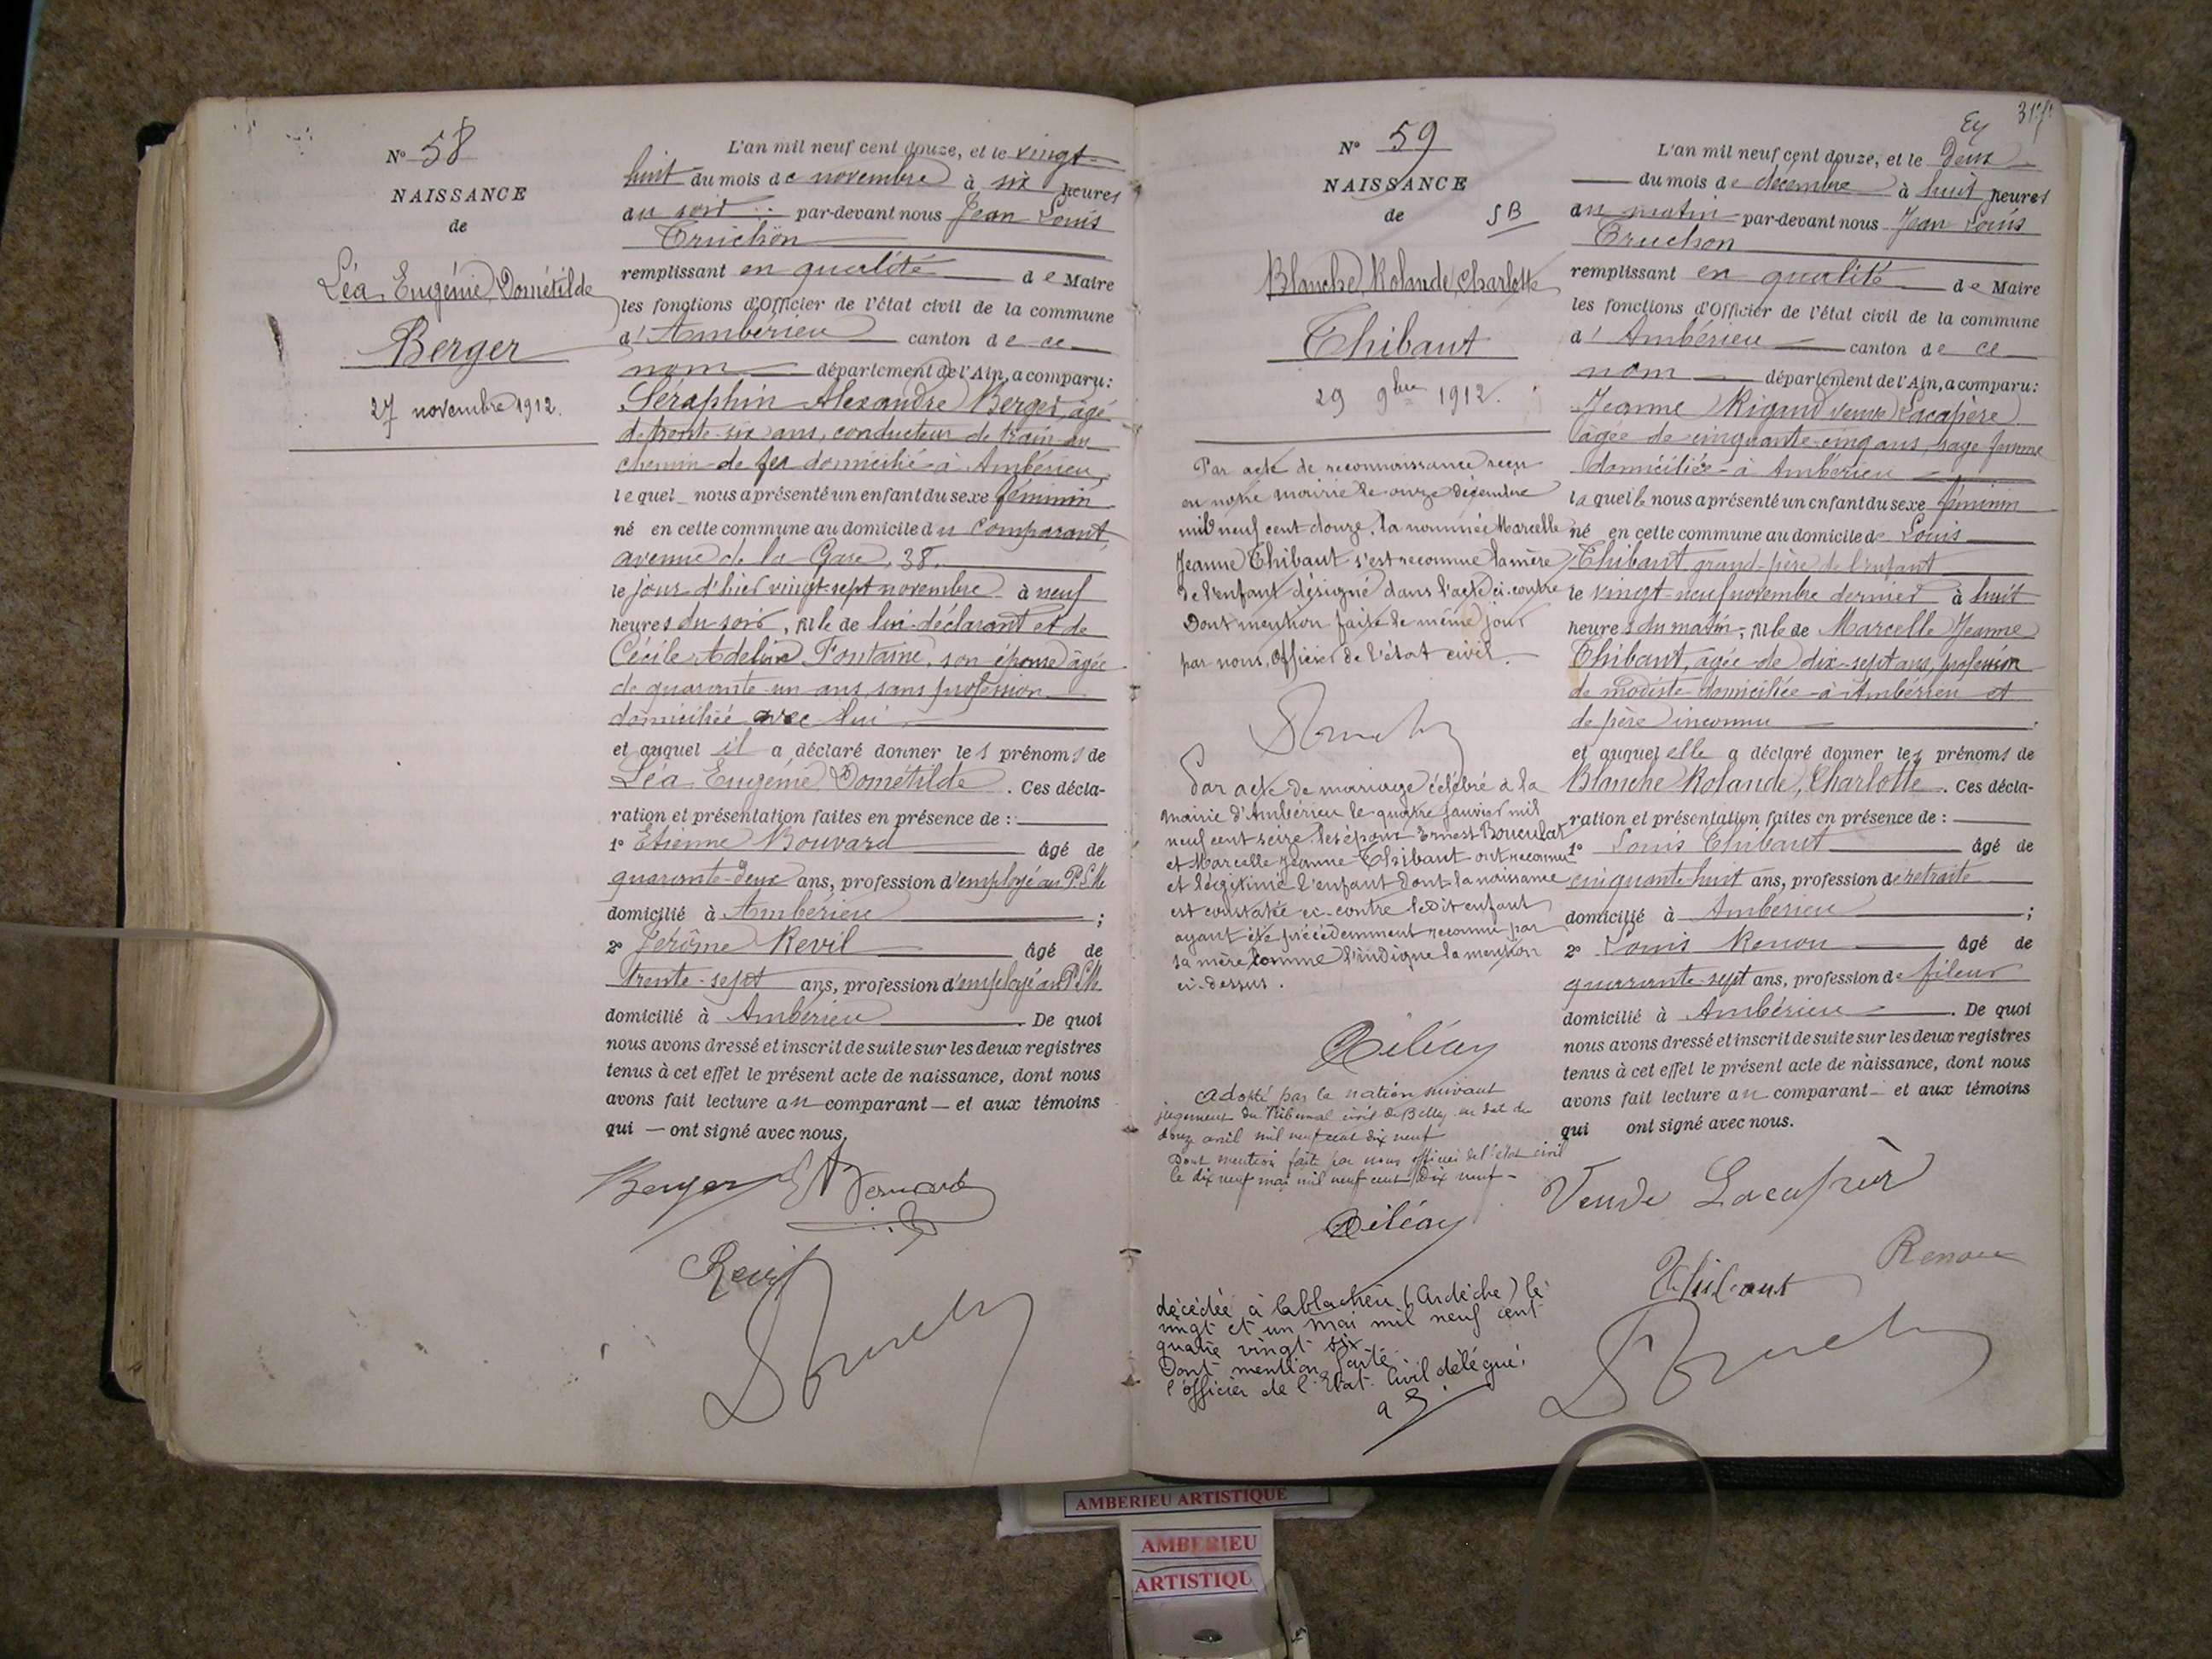 N° 58
NAISSANCE
de
Léa Eugénie Dométilde
Berger
27 novembre 1912.
L'an mil neuf cent douze, et le vingt-
huit du mois de novembre à six heures
du soir par-devant nous Jean Louis
Truchon
remplissant en qualité de Maire
les fonctions d'Officier de l'état civil de la commune
d'Ambérieu canton de ce
nom département de l'Ain, a comparu :
Séraphin Alexandre Berger, âgé
de trente-six ans, conducteur de train au
chemin de fer domicilié à Ambérieu,
lequel nous a présenté un enfant du sexe féminin
né en cette commune au domicile du comparant,
avenue de la Gare, 38,
le jour d'hier vingt-sept novembre à neuf
heures du soir, fille de lui déclarant et de
Cécile Adeline Fontaine, son épouse âgée
de quarante-un ans, sans profession
domiciliée avec lui
et auquel il a déclaré donner les prénoms de
Léa Eugénie Dométilde. Ces décla-
ration et présentation faites en présence de :
1° Etienne Bouvard âgé de
quarante-deux ans, profession d'employé au P.L.M.
domicilié à Ambérieu ;
2° Jérôme Revil âgé de
trente-sept ans, profession d'employé au P.L.M.
domicilié à Ambérieu. De quoi
nous avons dressé et inscrit de suite sur les deux registres
tenus à cet effet le présent acte de naissance, dont nous
avons fait lecture au comparant et aux témoins
qui — ont signé avec nous.
Berger
Revil
N° 59
NAISSANCE
de
SB
Blanche, Rolande, Charlotte
Thibaut
29 9bre 1912.
Par acte de reconnaissance reçu
en notre mairie le onze décembre
mil neuf cent douze, la nommée Marcelle
Jeanne Thibaut s'est reconnue la mère
de l'enfant désigné dans l'acte ci-contre
Dont mention faite le même jour
par nous, Officier de l'état civil.
Par acte de mariage célébré à la
mairie d'Ambérieu le quatre janvier mil
neuf cent seize, les époux Ernest
et Marcelle Jeanne Thibaut ont reconnu
et légitimé l'enfant dont la naissance
est constatée ci-contre ledit enfant
ayant été précédemment reconnu par
sa mère comme l'indique la mention
ci-dessus.
Adopté par la nation suivant
jugement du Tribunal civil de Belley en date du
douze avril mil neuf cent dix neuf
Dont mention faite par nous officier de l'état civil
le dix neuf mai mil neuf cent dix neuf
décédée à lablachère (Ardèche) le
vingt et un mai mil neuf cent
quatre vingt six
Dont mention faite
l'officier de l'Etat Civil délégué,
L'an mil neuf cent douze, et le deux
du mois de décembre à huit heures
du matin par-devant nous Jean Louis
Truchon
remplissant en qualité de Maire
les fonctions d'Officier de l'état civil de la commune
d'Ambérieu canton de ce
nom département de l'Ain, a comparu :
Jeanne Rigaud veuve Lacapère
âgée de cinquante-cinq ans, sage femme
domiciliée à Ambérieu
laquelle nous a présenté un enfant du sexe féminin
né en cette commune au domicile de Louis
Thibaut grand-père de l'enfant
le vingt-neuf novembre dernier à huit
heures du matin, fille de Marcelle Jeanne
Thibaut, âgée de dix-sept ans, profession
de modiste domiciliée à Ambérieu et
de père inconnu
et auquel elle a déclaré donner les prénoms de
Blanche Rolande, Charlotte. Ces décla-
ration et présentation faites en présence de :
1° Louis Thibaut âgé de
cinquante huit ans, profession de retraité
domicilié à Ambérieu ;
2° Louis Renou âgé de
quarante-sept ans, profession de fileur
domicilié à Ambérieu. De quoi
nous avons dressé et inscrit de suite sur les deux registres
tenus à cet effet le présent acte de naissance, dont nous
avons fait lecture au comparant et aux témoins
qui ont signé avec nous.
Veuve Lacapèr
Thibaut
Renou
AMBERIEU ARTISTIQUE
AMBERIEU
ARTISTIQU